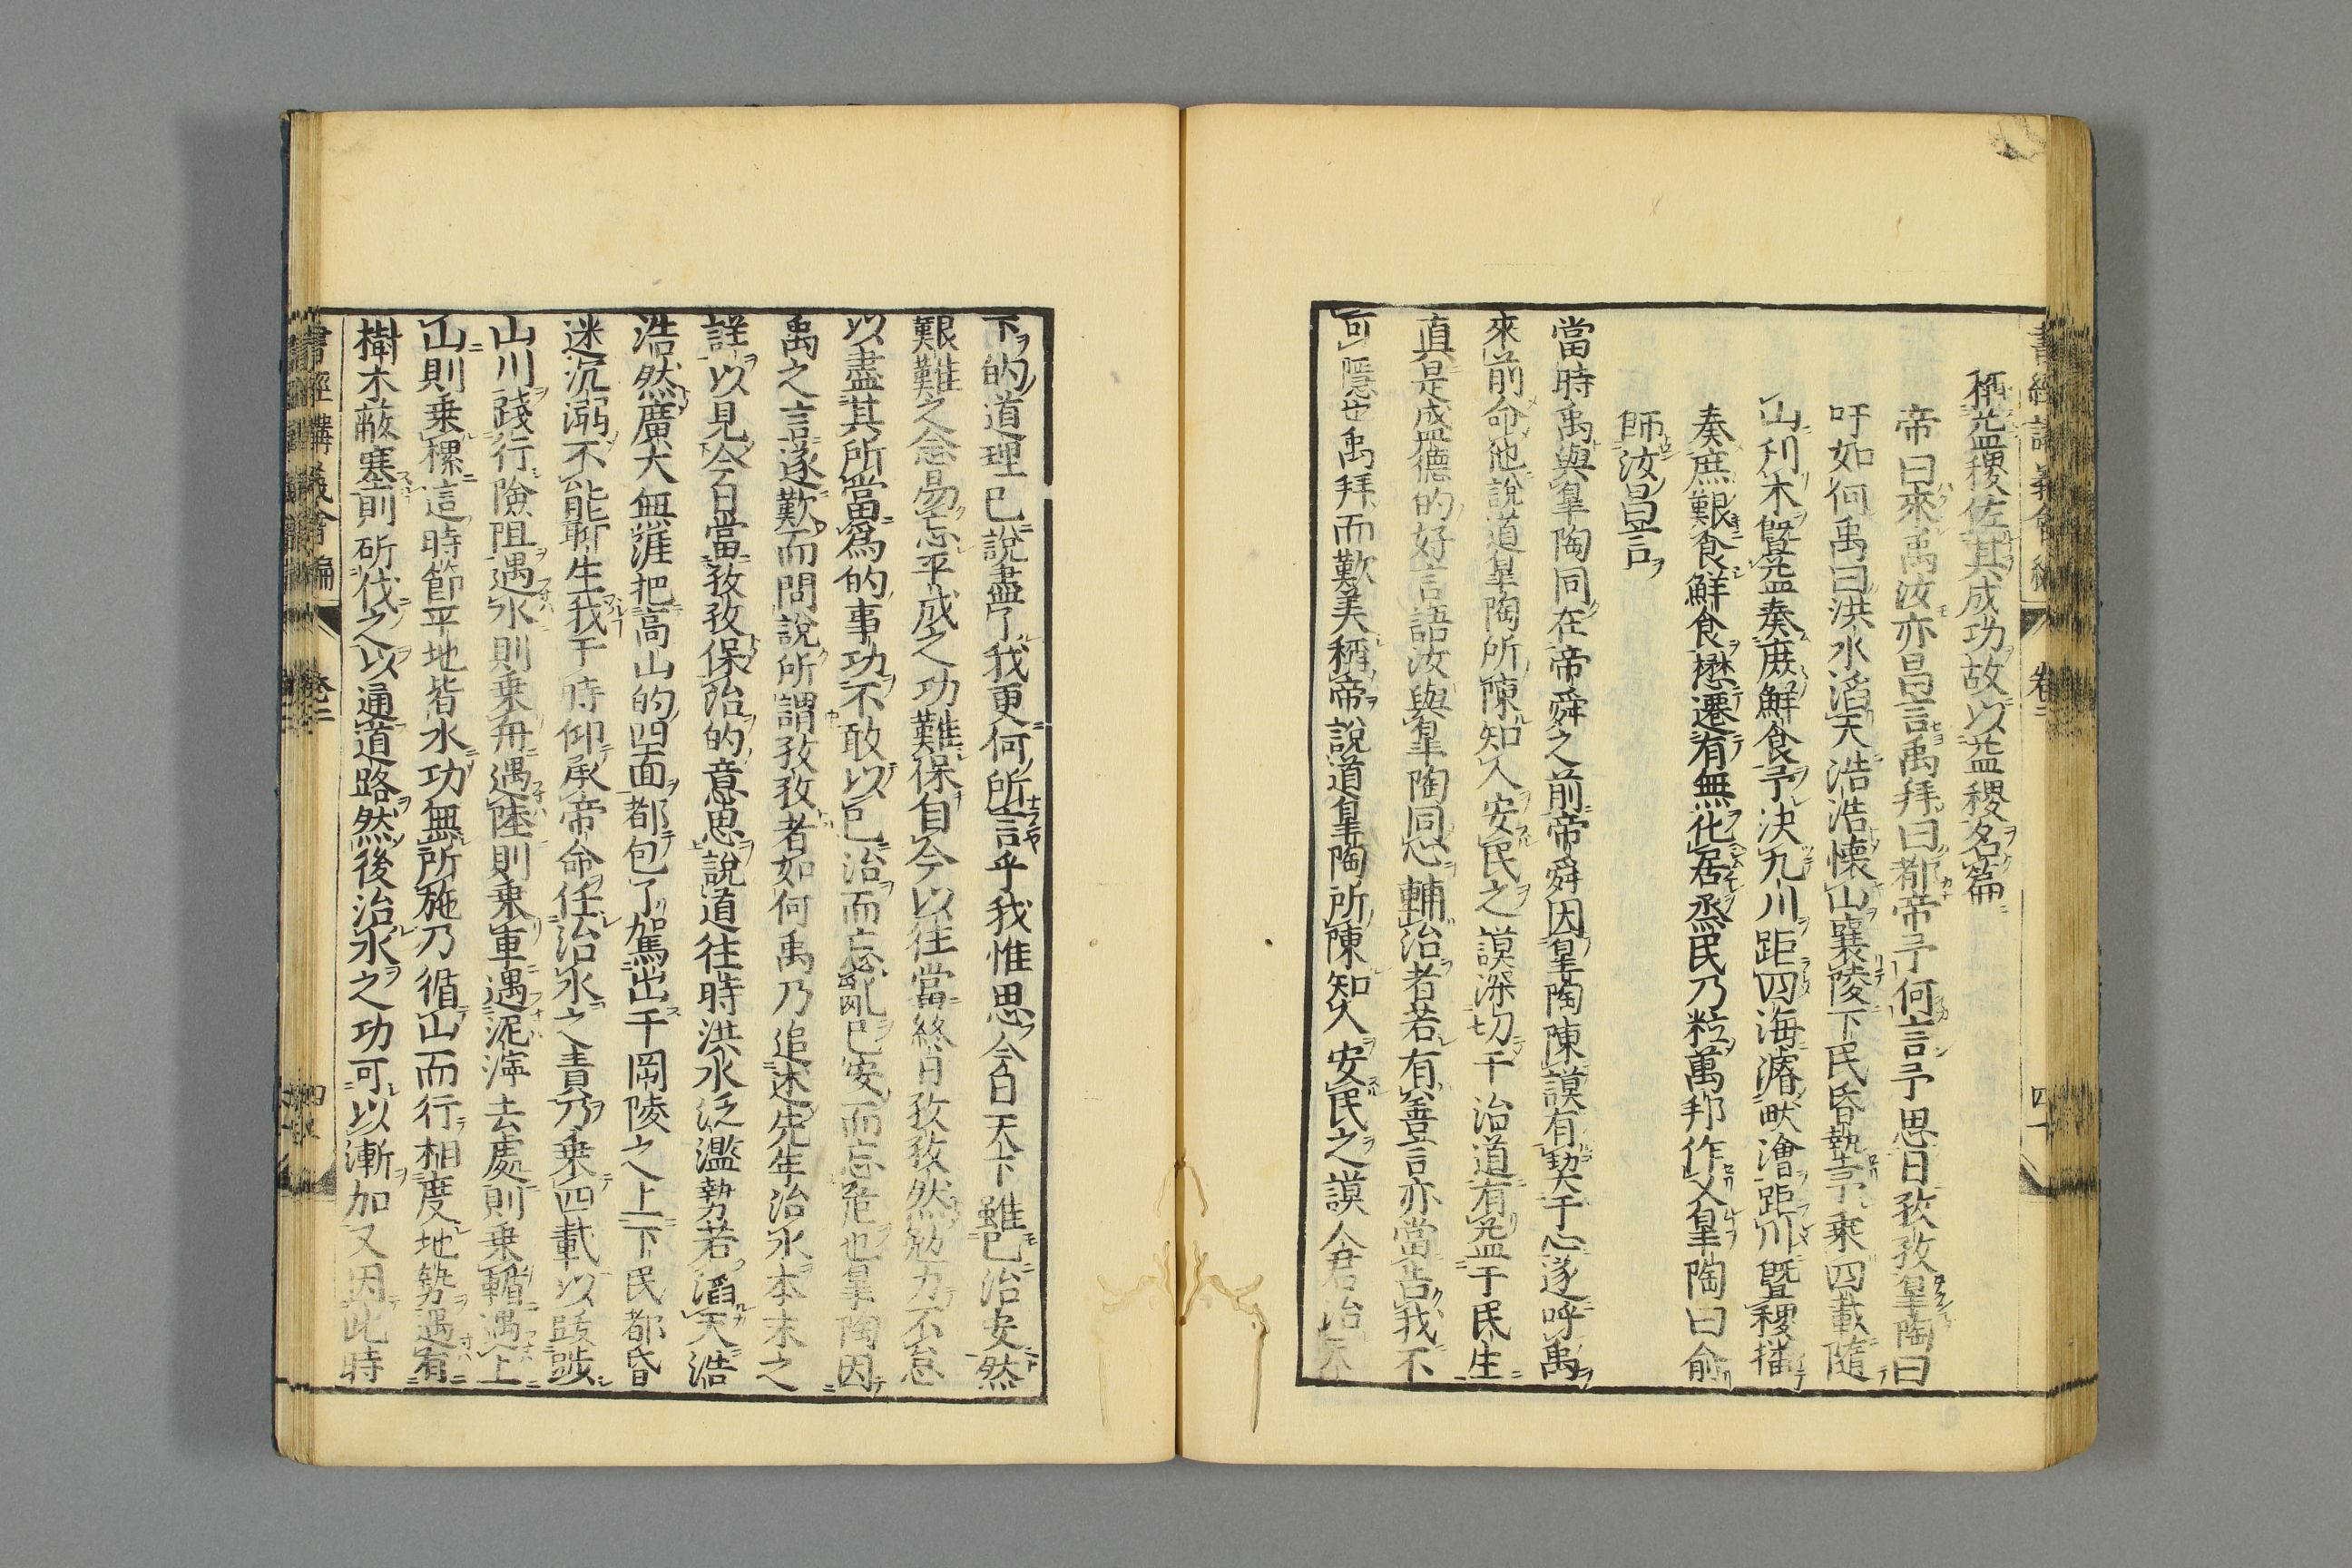 稱益稷佐其成功故以益稷名篇
帝曰來禹汝亦昌言禹拜曰都帝予何言予思日孜孜皐陶曰
吁如何禹曰洪水滔天浩浩懷山襄陵下民昏墊予乘四載隨
山刋木曁益奏庶鮮食予決九川距四海濬畎澮距川曁稷播
奏庶艱食鮮食懋遷有無化居烝民乃粒萬邦作乂皐陶曰俞
師汝昌言
當時禹與皐陶同在帝舜之前帝舜因皐陶陳謨有契于心遂呼禹
來前命他說道皐陶所陳知人安民之謨深切于治道有益于民生
真是盛德的好言語汝與皐陶同心輔治者若有善言亦當告我不
可隱也禹拜而歎美稱帝說道皐陶所陳知人安民之謨人君治天
書經講義會編
卷二
四十
下的道理已說盡了我更何所言乎我惟思今日天下雖已治安然
艱難之念易忘平成之功難保自今以往當終日孜孜然勉力不怠
以盡其所當爲的事功不敢以已治而忘亂已安而忘危也皐陶因
禹之言遂歎而問說所謂孜孜者如何禹乃追述先年治水本末之
詳以見今日當孜孜保治的意思說道往時洪水泛濫勢若滔天浩
浩然廣大無涯把高山的四面都包了駕出于岡陵之上下民都昏
迷沉溺不能聊生我于時仰承帝命任治水之責乃乘四載以跋涉
山川踐行險阻遇水則乘舟遇陸則乘車遇泥濘去處則乘輴遇上
山則乘樏這時節平地皆水功無所施乃循山而行相度地勢遇有
樹木蔽塞前斫伐之以通道路然後治水之功可以漸加又因此時
書經講義會編
卷二